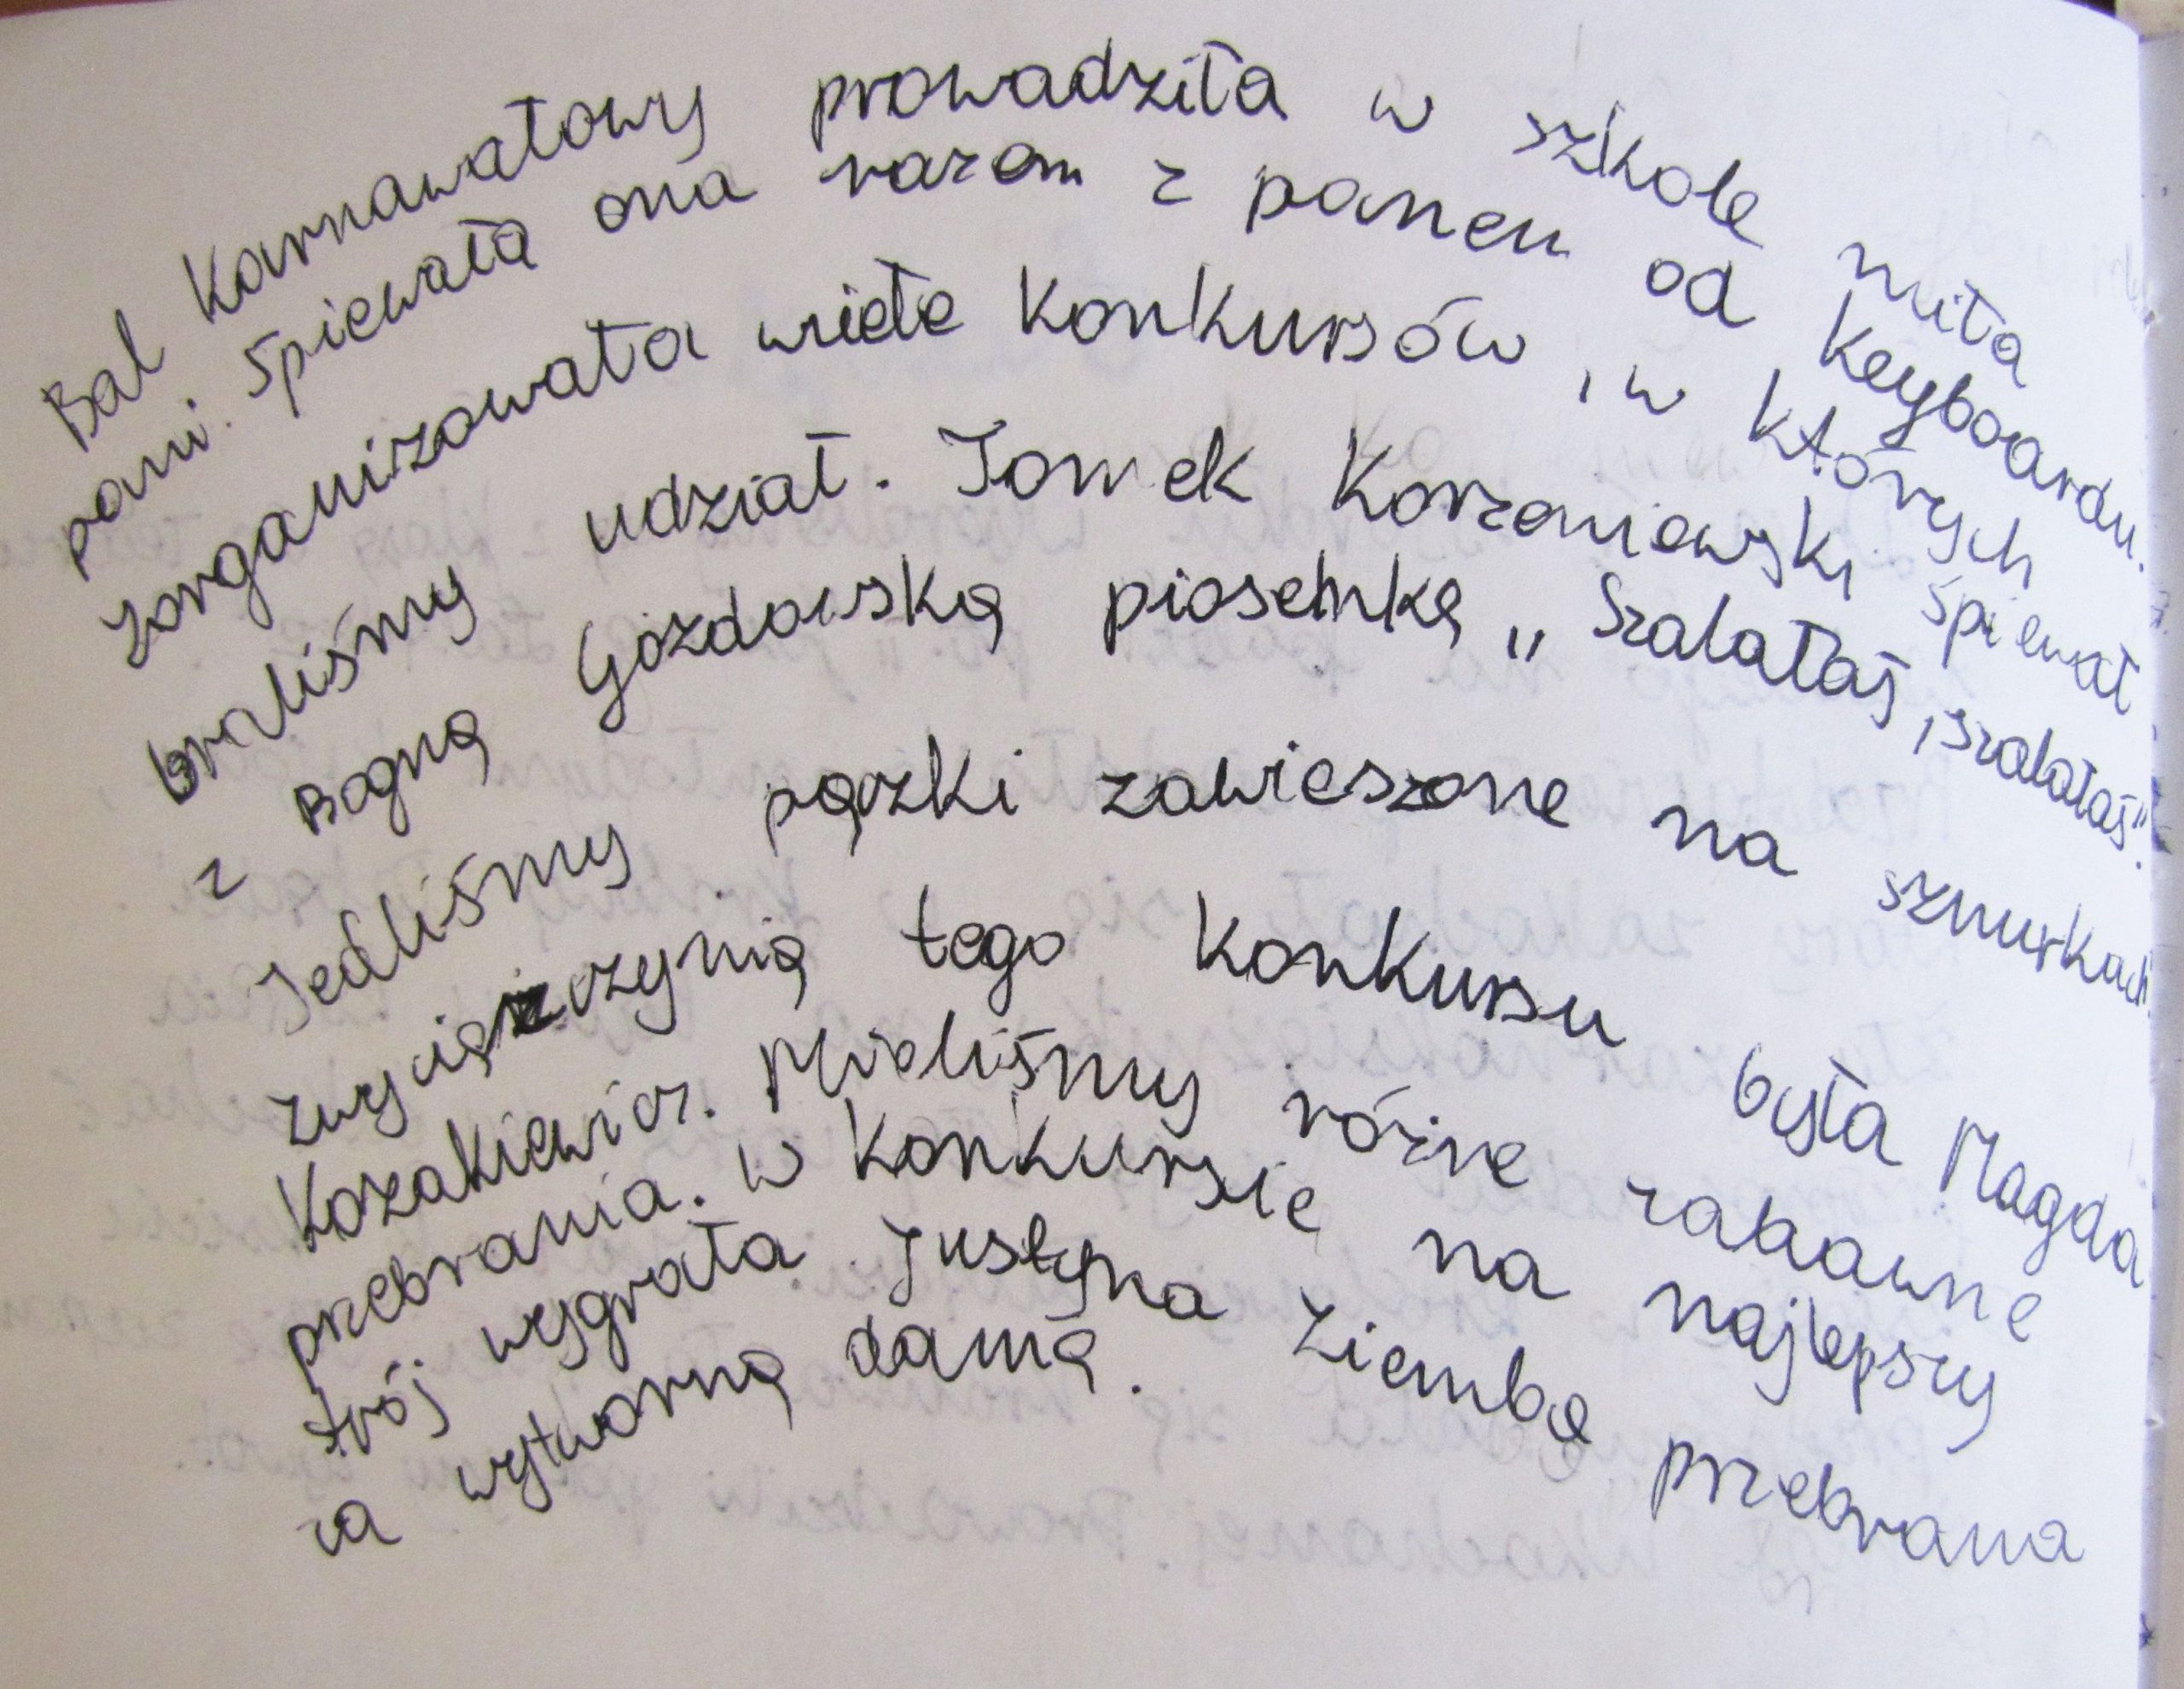 Bal karnawałowy prowadziła w szkole miła
pani. Śpiewała ona razem z panem od keyboardu.
Zorganizowała wiele konkursów, w których
braliśmy udział. Tomek Korzeniowski śpiewał
z Bogną Gozdowską piosenkę „Szalałaś, szalałaś".
Jedliśmy pączki zawieszone na sznurkach
Zwyciężczynią tego konkursu była Magda
Kozakiewicz. Mieliśmy różne zabawne
przebrania. W konkursie na najlepszy
strój wygrała Justyna Ziemba przebrana
za wytworną damę.